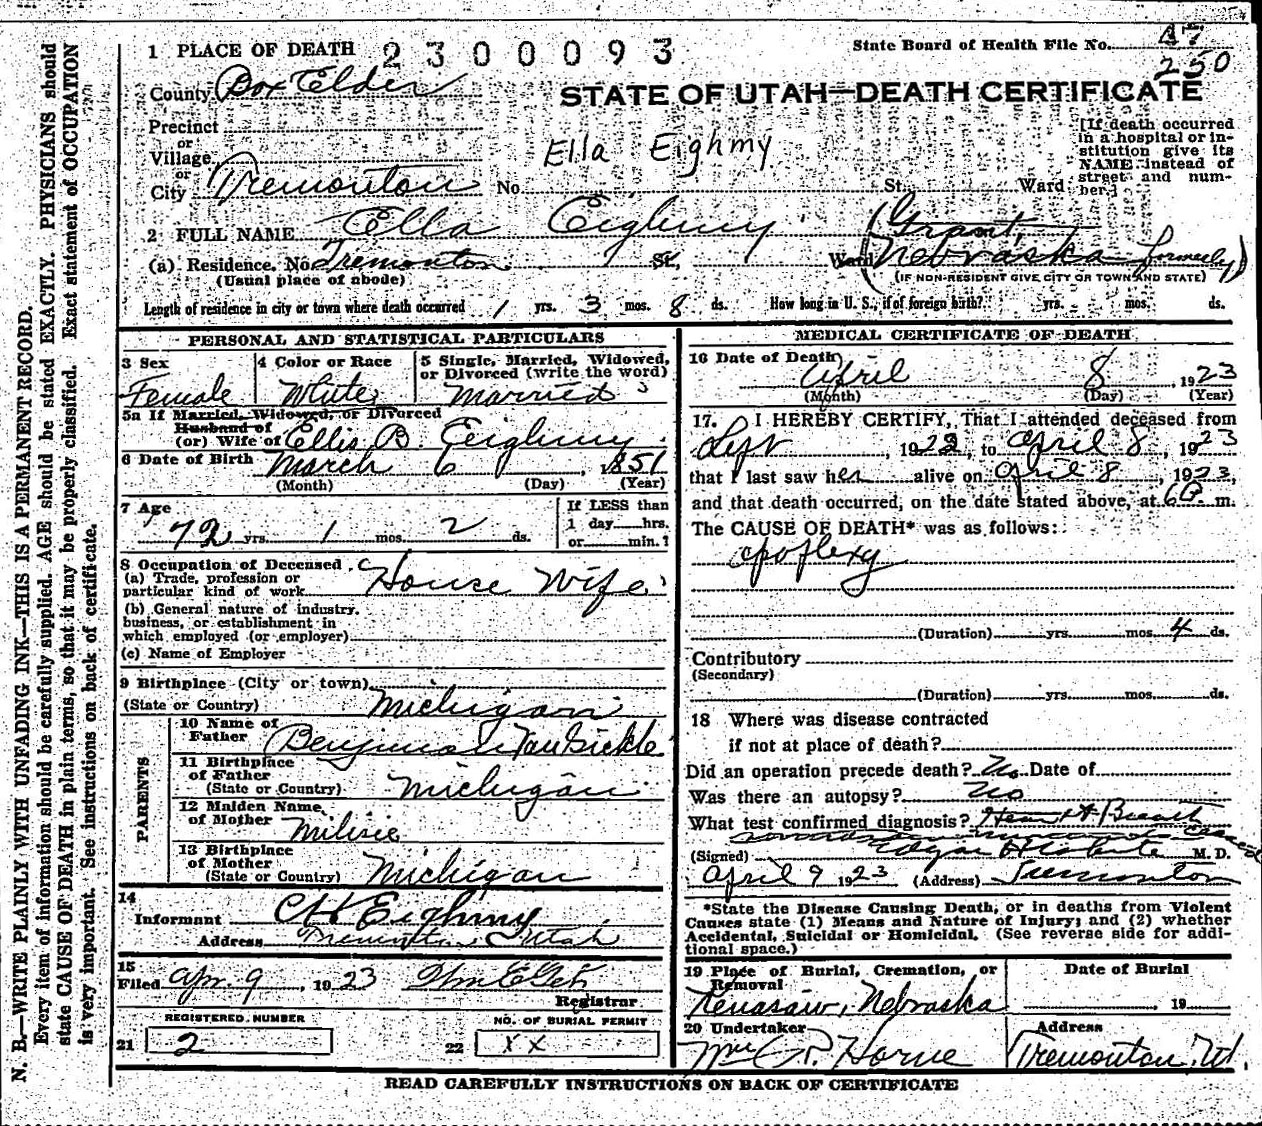 1 PLACE OF DEATH 2300093 State Board of Health File No. 47
250
County Box Elder
STATE OF UTAH—DEATH CERTIFICATE
Precinct
or
Village
or
City Tremonton No. St. Ward
Ella Eighmy
[If death occurred
in a hospital or in-
stitution give its
NAME instead of
street and num-
ber.]
2 FULL NAME Ella Eighmy
(Grant,
Nebraska formerly)
(a) Residence. No. Tremonton St. Ward
(Usual place of abode) (IF NON-RESIDENT GIVE CITY OR TOWN AND STATE)
Length of residence in city or town where death occurred 1 yrs. 3 mos. 8 ds. How long in U. S., if of foreign birth? yrs. mos. ds.
PERSONAL AND STATISTICAL PARTICULARS
3 Sex
Female
4 Color or Race
White
5 Single, Married, Widowed,
or Divorced (write the word)
Married
5a If Married, Widowed, or Divorced
Husband of
(or) Wife of Ellis B Eeighmy
6 Date of Birth March 6, 1851
(Month) (Day) (Year)
7 Age
72 yrs. 1 mos. 2 ds.
If LESS than
1 day hrs.
or min.?
8 Occupation of Deceased
(a) Trade, profession or
particular kind of work House Wife
(b) General nature of industry,
business, or establishment in
which employed (or employer)
(c) Name of Employer
9 Birthplace (City or town)
(State or Country) Michigan
PARENTS
10 Name of
Father Benjiman VanSickle
11 Birthplace
of Father
(State or Country) Michigan
12 Maiden Name
of Mother
13 Birthplace
of Mother
(State or Country) Michigan
14
Informant CH Eighmy
Address Tremonton, Utah
15
Filed Apr. 9, 1923
Registrar
REGISTERED NUMBER
21 2
NO. OF BURIAL PERMIT
22 XX
MEDICAL CERTIFICATE OF DEATH
16 Date of Death
April 8, 1923
(Month) (Day) (Year)
17. I HEREBY CERTIFY, That I attended deceased from
Sept, 1922, to April 8, 1923
that I last saw her alive on April 8, 1923,
and that death occurred, on the date stated above, at 6 P. m.
The CAUSE OF DEATH* was as follows:
apoplexy
(Duration) yrs. mos. 4 ds.
Contributory
(Secondary)
(Duration) yrs. mos. ds.
18 Where was disease contracted
if not at place of death?
Did an operation precede death? No Date of
Was there an autopsy? No
What test confirmed diagnosis?
(Signed) M. D.
April 9 1923 (Address) Tremonton
*State the Disease Causing Death, or in deaths from Violent
Causes state (1) Means and Nature of Injury; and (2) whether
Accidental, Suicidal or Homicidal. (See reverse side for addi-
tional space.)
19 Place of Burial, Cremation, or
Removal
Kenasaw, Nebraska
Date of Burial
, 19
20 Undertaker
Horne
Address
Tremonton, Ut
READ CAREFULLY INSTRUCTIONS ON BACK OF CERTIFICATE
N. B.—WRITE PLAINLY WITH UNFADING INK—THIS IS A PERMANENT RECORD.
Every item of information should be carefully supplied. AGE should be stated EXACTLY. PHYSICIANS should
state CAUSE OF DEATH in plain terms, so that it may be properly classified. Exact statement of OCCUPATION
is very important. See instructions on back of certificate.